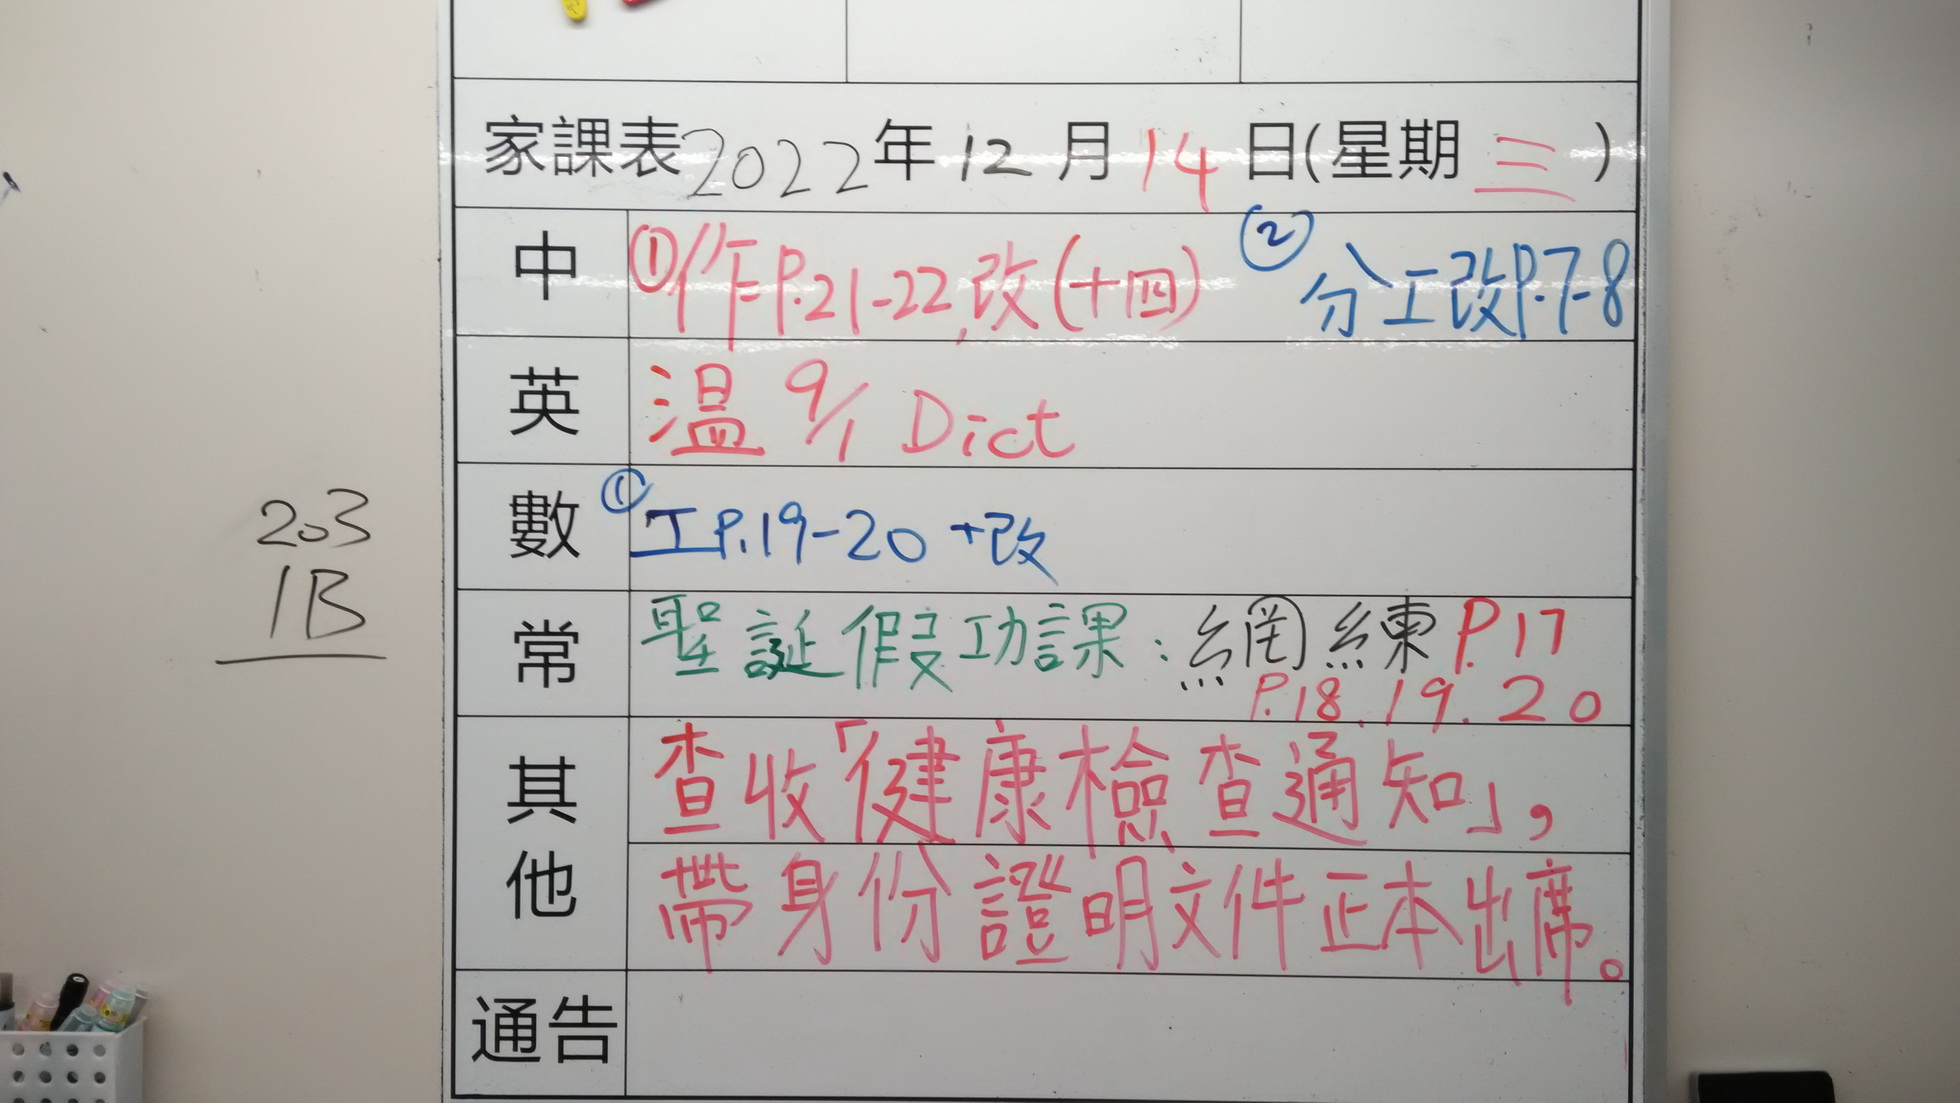 家課表2022年12月14日(星期三)
中 ①作P.21-22,改(十四) ②分工改P.7-8
英 溫9/1 Dict
數 ①工P.19-20+改
常 聖誕假功課:網練P.17
P.18.19.20
其他 查收「健康檢查通知」,
帶身份證明文件正本出席。
通告
203
1B